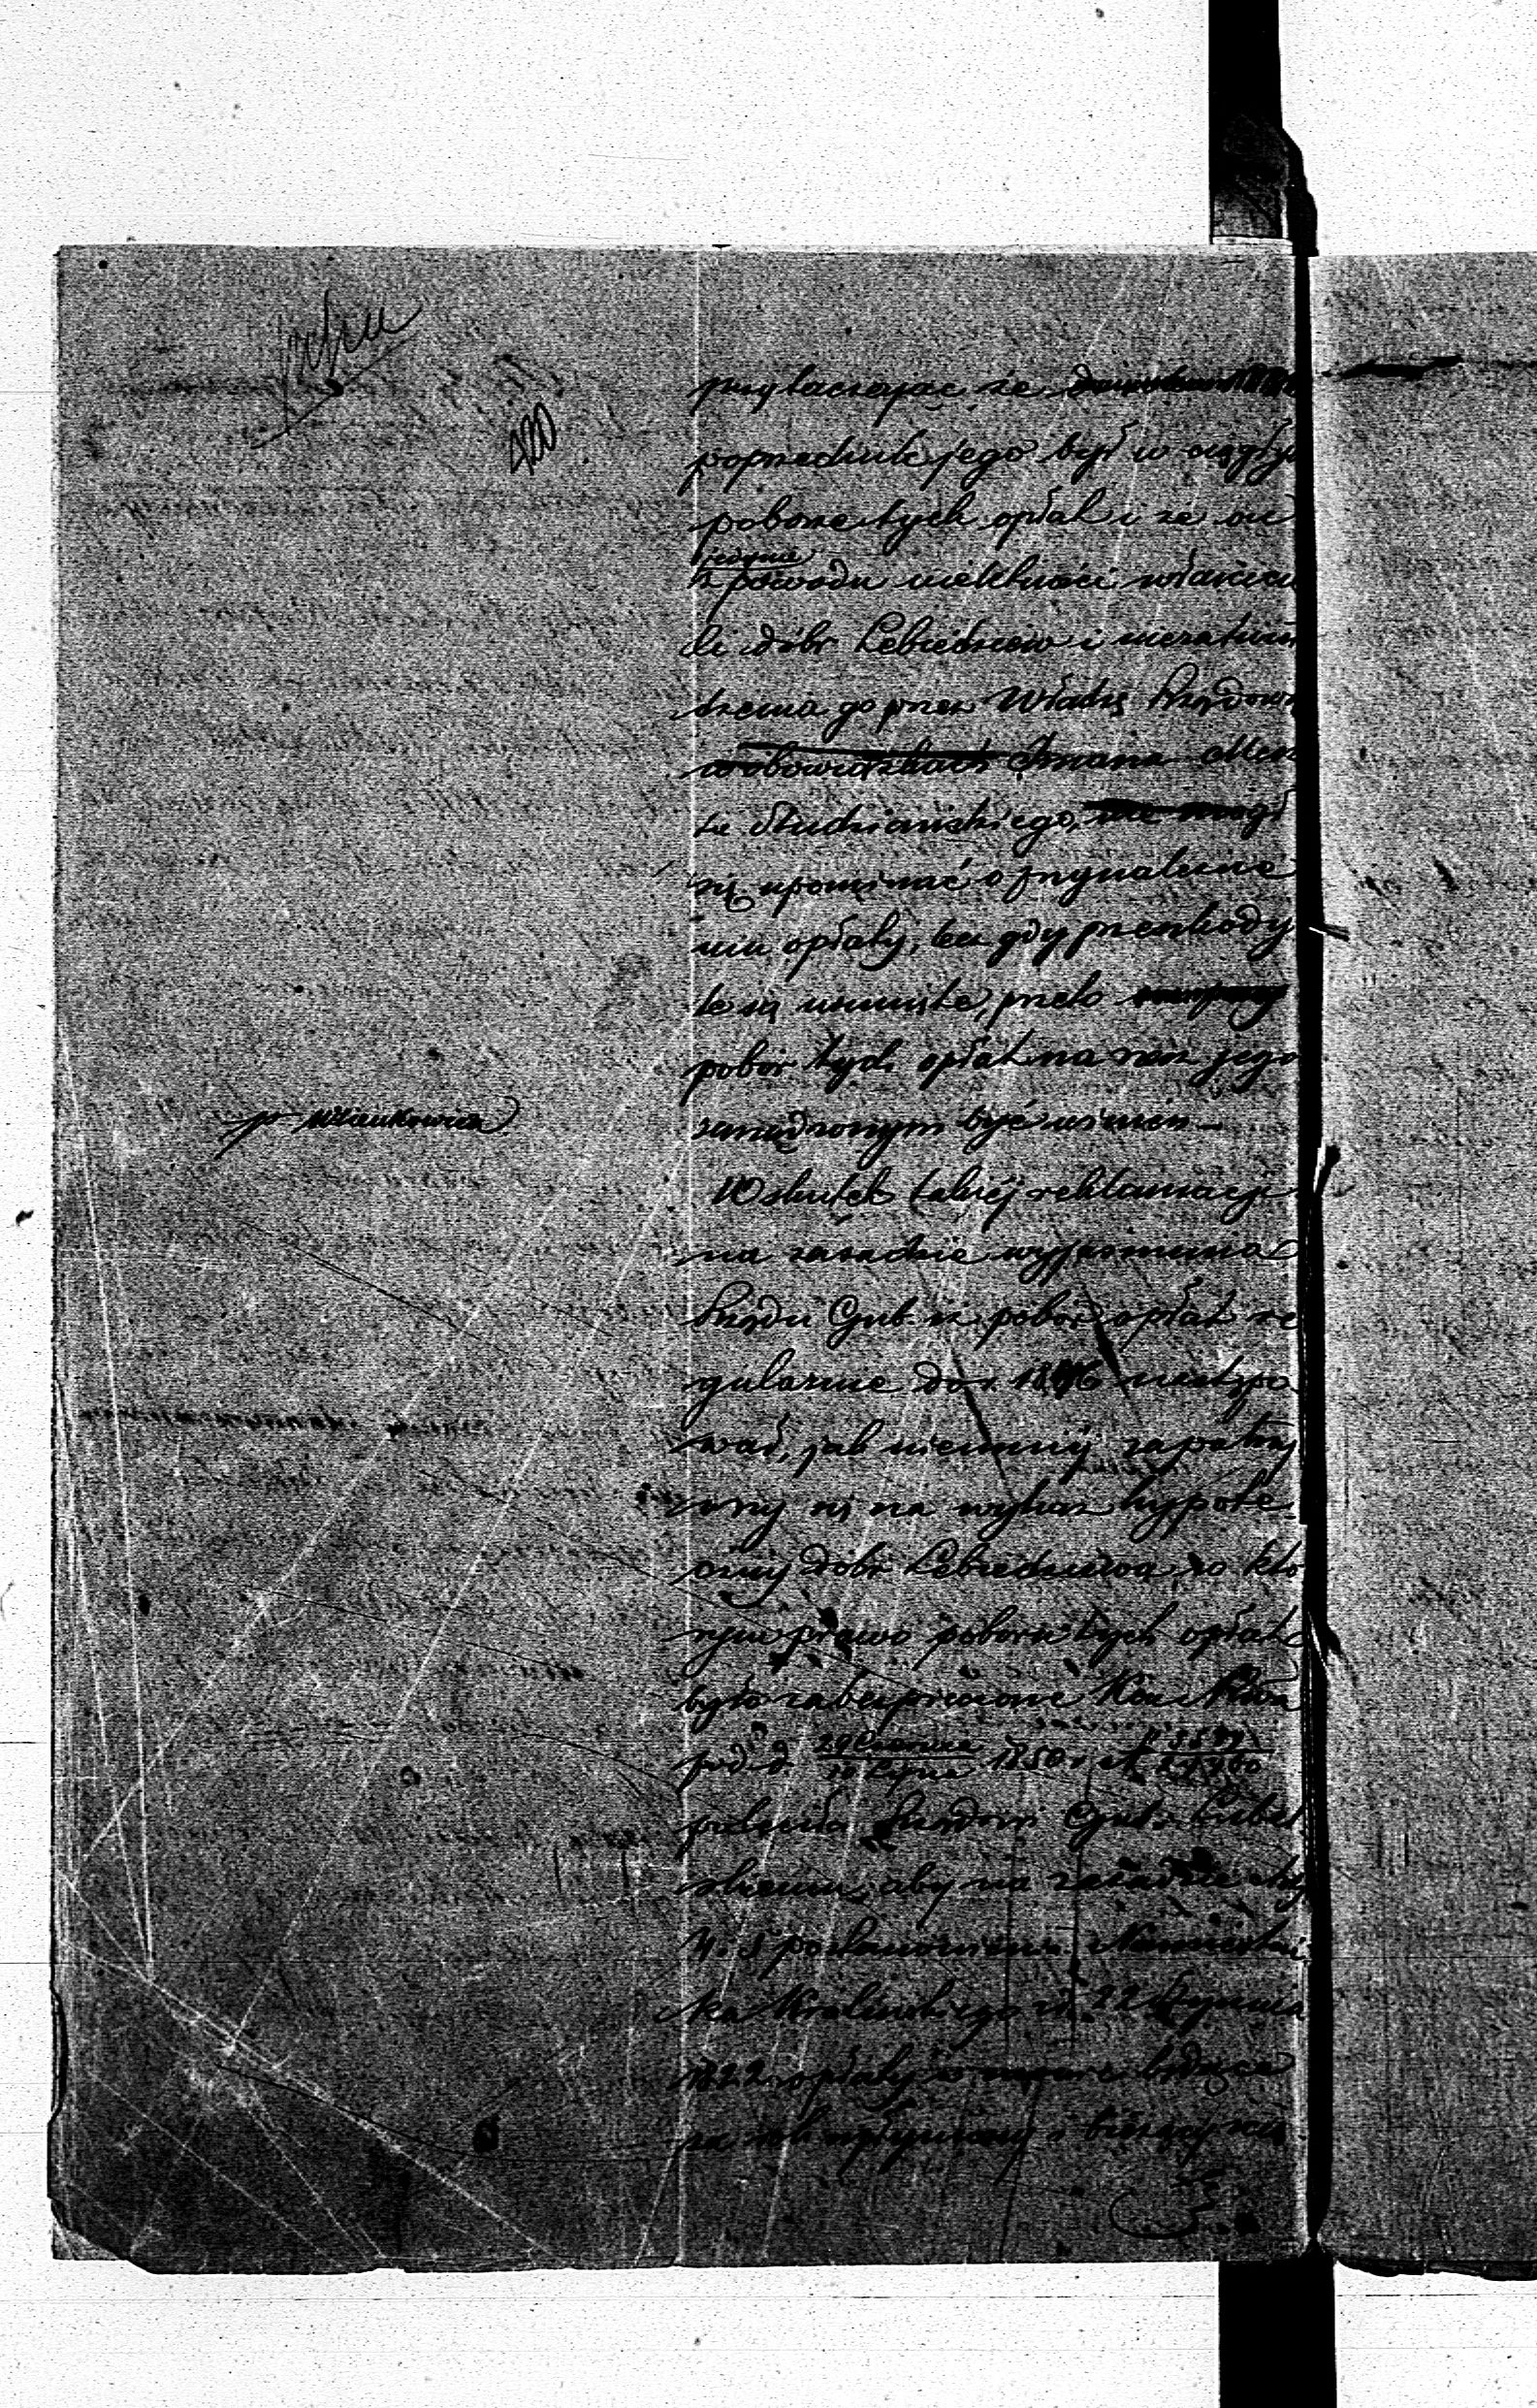 420
przytaczając że
poprzednik jego był w ciągłym
poborze tych opłat i że on
jedynie
z powodu nieletności właścicie
li dóbr Lebiedziew i niezatwier
dzenia go przez Władzę Rządową
w obowiązkach Imana Mecze
tu Studziańskiego, nie mógł
się upominać o przynależne
mu opłaty, lecz gdy przeszkody
te są usunięte, przeto
pobór tych opłat na rzecz jego
zarządzonym być winien –
p Uliankowicza
W skutek takiéj reklamacji
na zasadzie wyjaśnienia
Rządu Gub. iż pobór opłat re
gularnie do r. 1846 następo
wał, jak niemniéj zapatrzy
wszy się na wykaz hypote
czny dóbr Lebiedziewa, w któ
rym prawo poboru tych opłat
było zabezpieczone Kom. Rząd.
pod d. 29 Czerwca / 11 Lipca 1850 r. N
poleciła Rządowi Gub. Lubel
skiemu, aby na zasadzie Art
4. i 5 postanowienia Namiestni
ka Królewskiego z d. 22 Stycznia
1822 opłaty w mowie będące
za rok upłyniony i bieżący